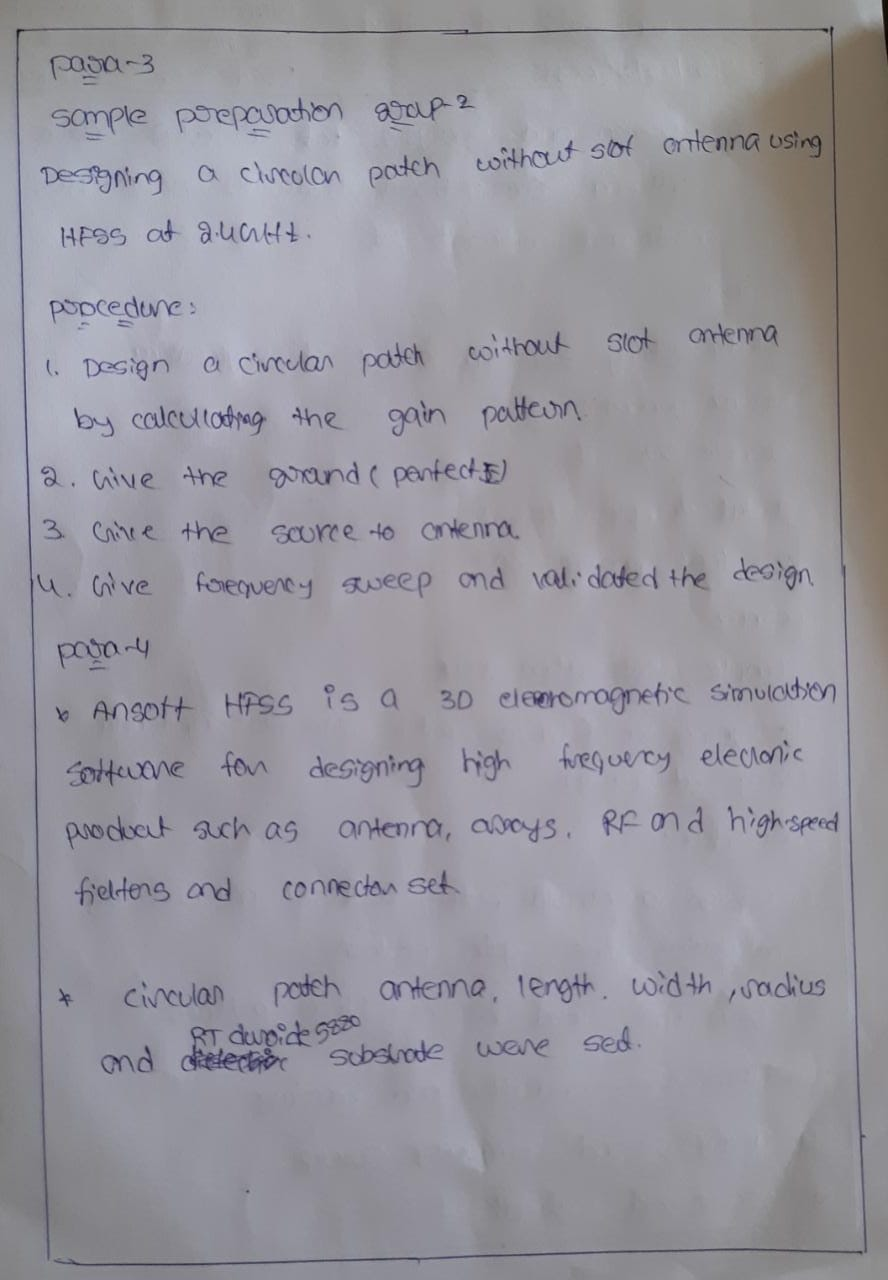 para-3
sample preparation group-2
Designing a circular patch without slot antenna using
HFSS at 2.4GHz.
procedure:
1. Design a circular patch without slot antenna
by calculating the gain pattern
2. Give the ground (perfect E)
3. Give the source to antenna.
4. Give frequency sweep and validated the design
para-4
* Ansoft HFSS is a 3D elecromagnetic simulation
software for designing high frequency elecronic
product such as antenna, arrays, RF and high-speed
fielters and connector set.
* circular patch antenna, length, width, radius
RT duroide 5880
and substrade were sed.